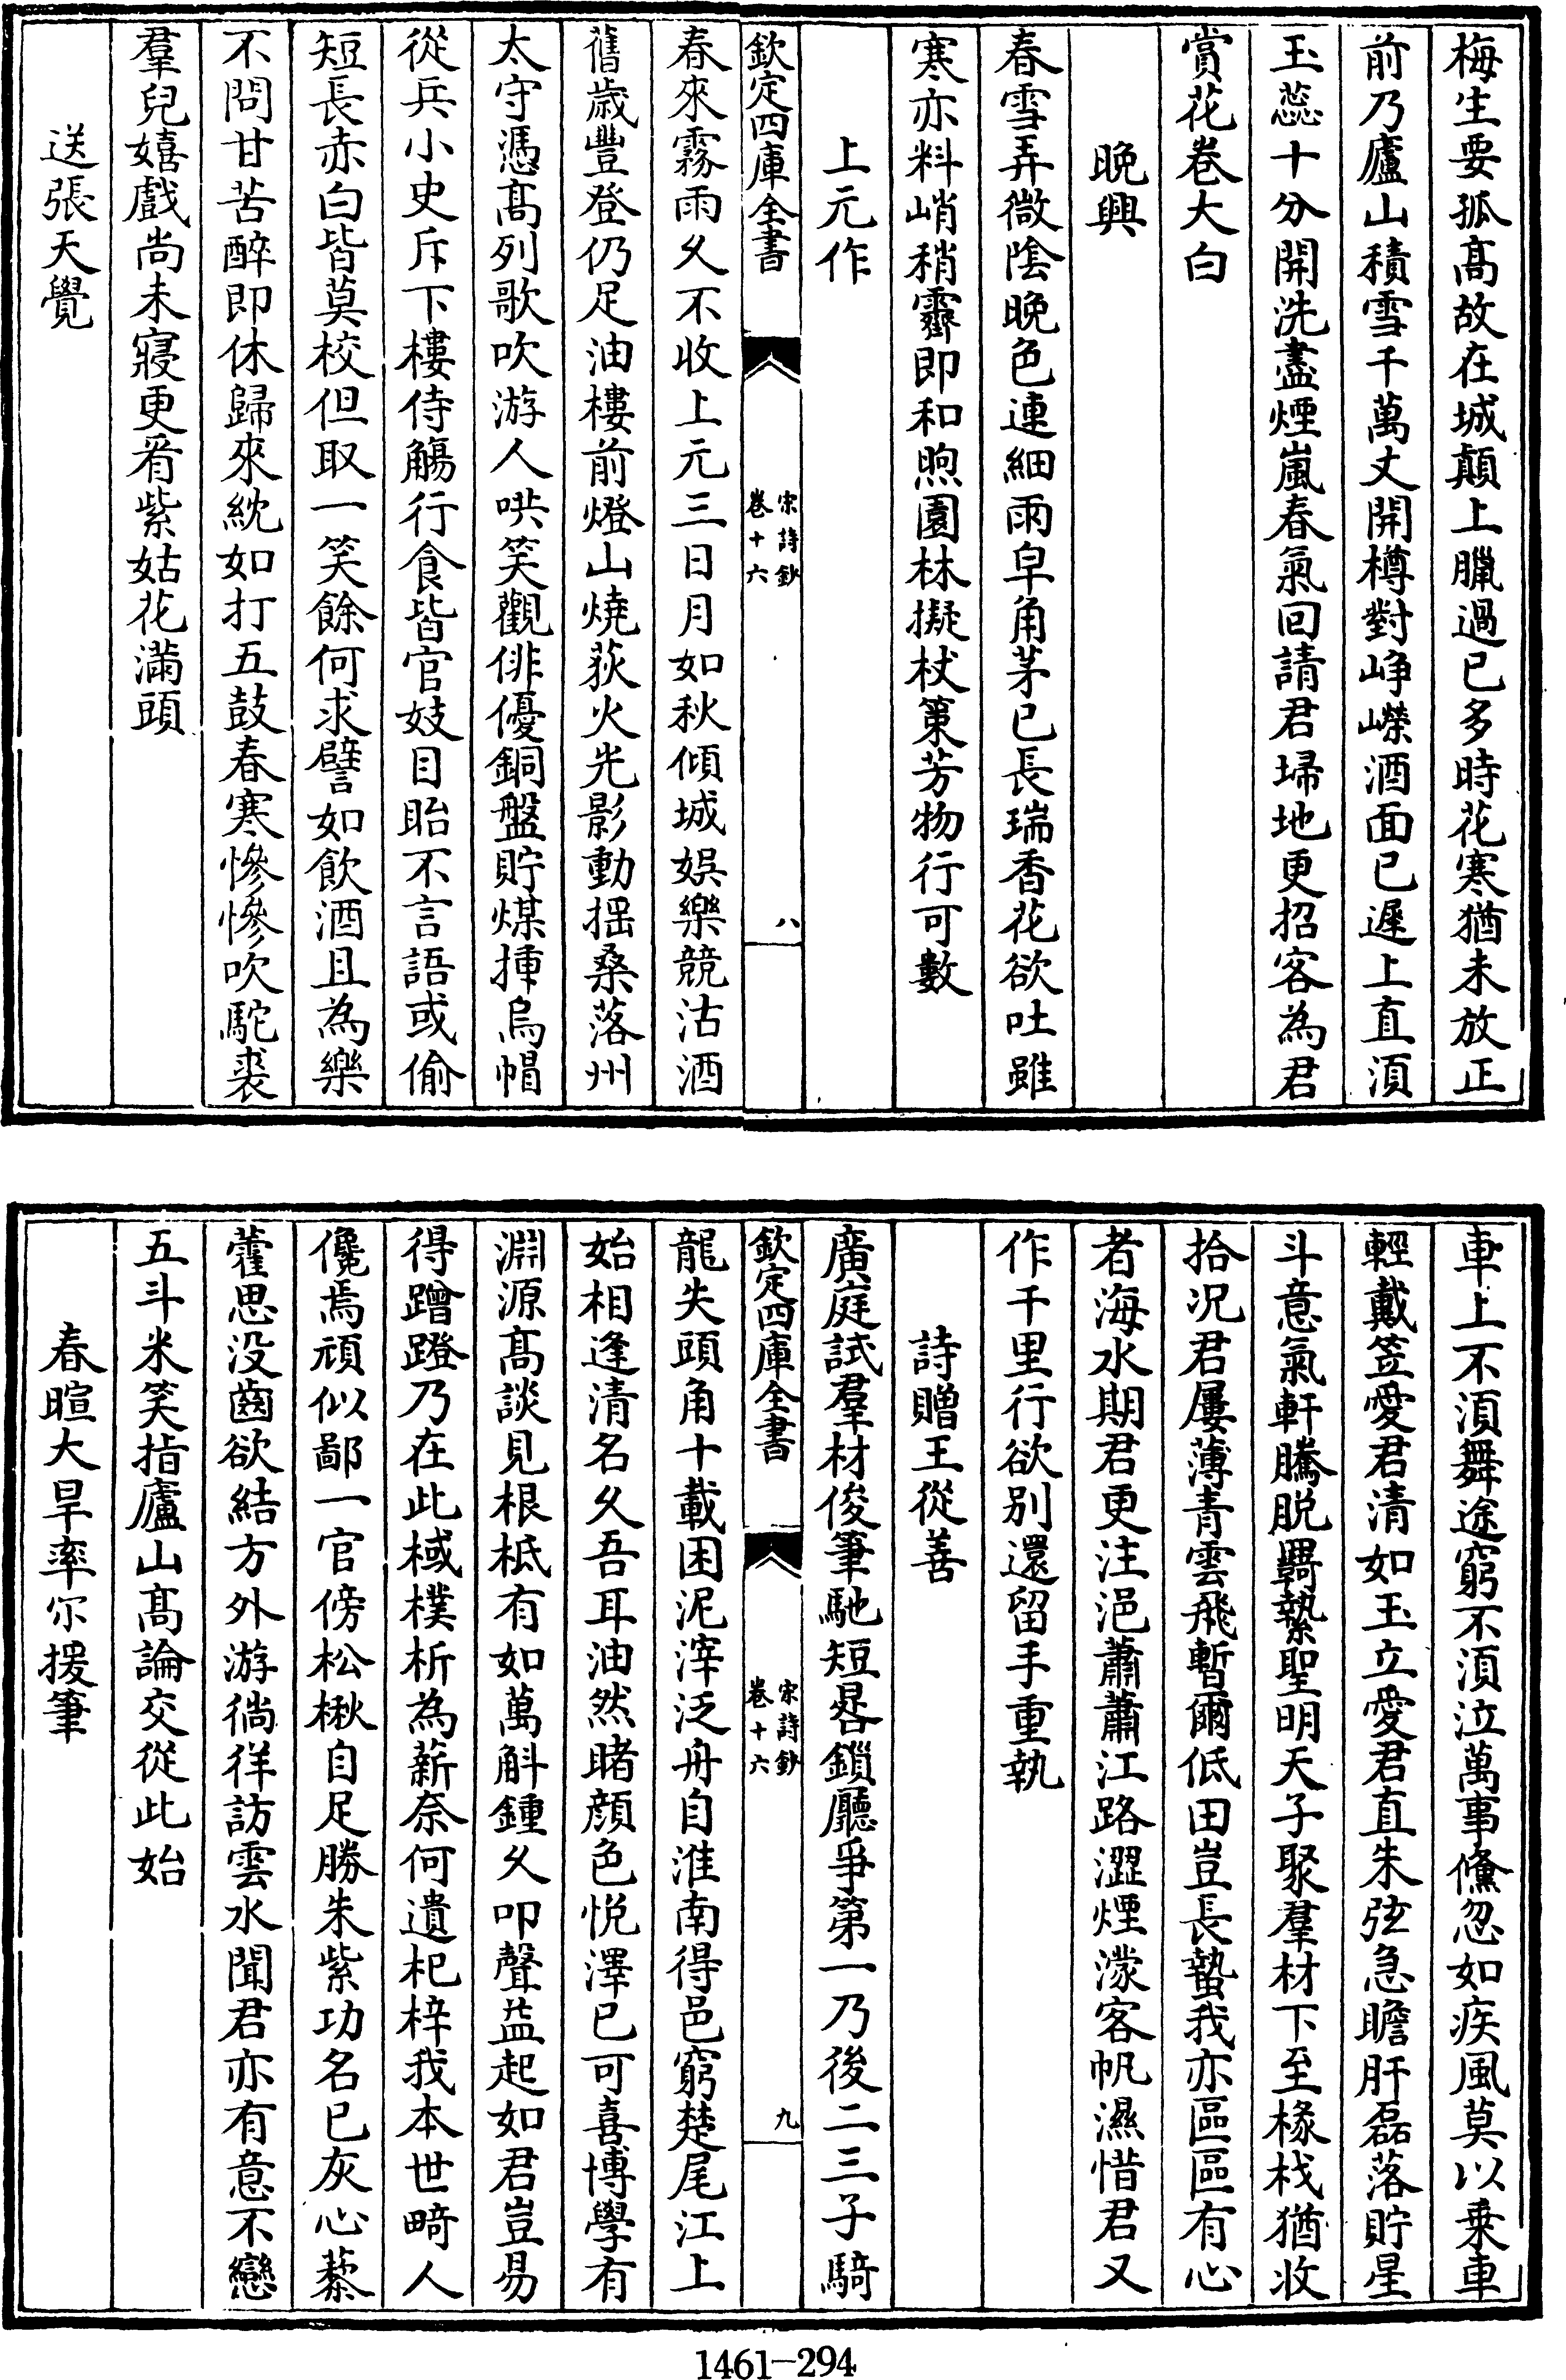 梅生要孤髙故在城顛上臘過已多時花寒猶未放正
前乃廬山積雪千萬丈開樽對崢嶸酒面已遲上直湏
玉蕊十分開洗盡煙嵐春氣回請君埽地更招客為君
賞花卷大白
晚興
春雪弄微陰晚色連細雨皁角茅已長瑞香花欲吐雖
寒亦料峭稍霽即和煦園林擬杖策芳物行可數
上元作
欽定四庫全書
宋詩鈔
卷十六
八
春來霧雨久不收上元三日月如秋傾城娯樂競沽酒
舊歲豐登仍足油樓前燈山燒荻火光影動揺桑落州
太守憑髙列歌吹游人哄笑觀俳優銅盤貯煤揷烏帽
從兵小史斥下樓侍觴行食皆官妓目眙不言語或偷
短長赤白皆莫校但取一笑餘何求譬如飲酒且為樂
不問甘苦醉即休歸來紞如打五鼓春寒慘慘吹駝裘
羣兒嬉戲尚未寢更看紫姑花滿頭
送張天覺
車上不湏舞途窮不湏泣萬事儵忽如疾風莫以乗車
輕戴笠愛君清如玉立愛君直朱弦急瞻肝磊落貯星
斗意氣軒騰脱羈縶聖明天子聚羣材下至椽栈猶收
拾况君屢薄青雲飛暫爾低田豈長蟄我亦區區有心
者海水期君更注浥蕭蕭江路澀煙濛客帆濕惜君又
作千里行欲别還留手重執
詩贈王從善
廣庭試羣材俊筆馳短晷鎖㕔爭第一乃後二三子騎
欽定四庫全書
宋詩鈔
卷十六
九
龍失頭角十載困泥滓泛舟自淮南得邑窮楚尾江上
始相逢清名久吾耳油然睹顔色悦澤已可喜博學有
淵源髙談見根柢有如萬斛鍾久叩聲益起如君豈易
得蹭蹬乃在此棫樸析為薪奈何遺杞梓我本世畸人
儳焉頑似鄙一官傍松楸自足勝朱紫功名已灰心藜
藿思没齒欲結方外游徜徉訪雲水聞君亦有意不戀
五斗米笑指廬山髙論交從此始
春暄大旱率尔援筆
1461-294